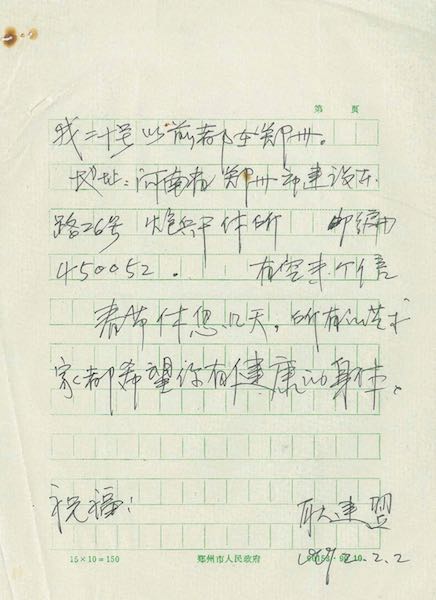 第 页
我二十号以前都在郑州。
地址:河南省郑州市建设东
路26号 炮兵干休所 邮编
450052. 有空来个信
春节休息几天,所有的艺术
家都希望你有健康的身体。
祝福!
耿建翌
2.2
15×10=150 郑州市人民政府